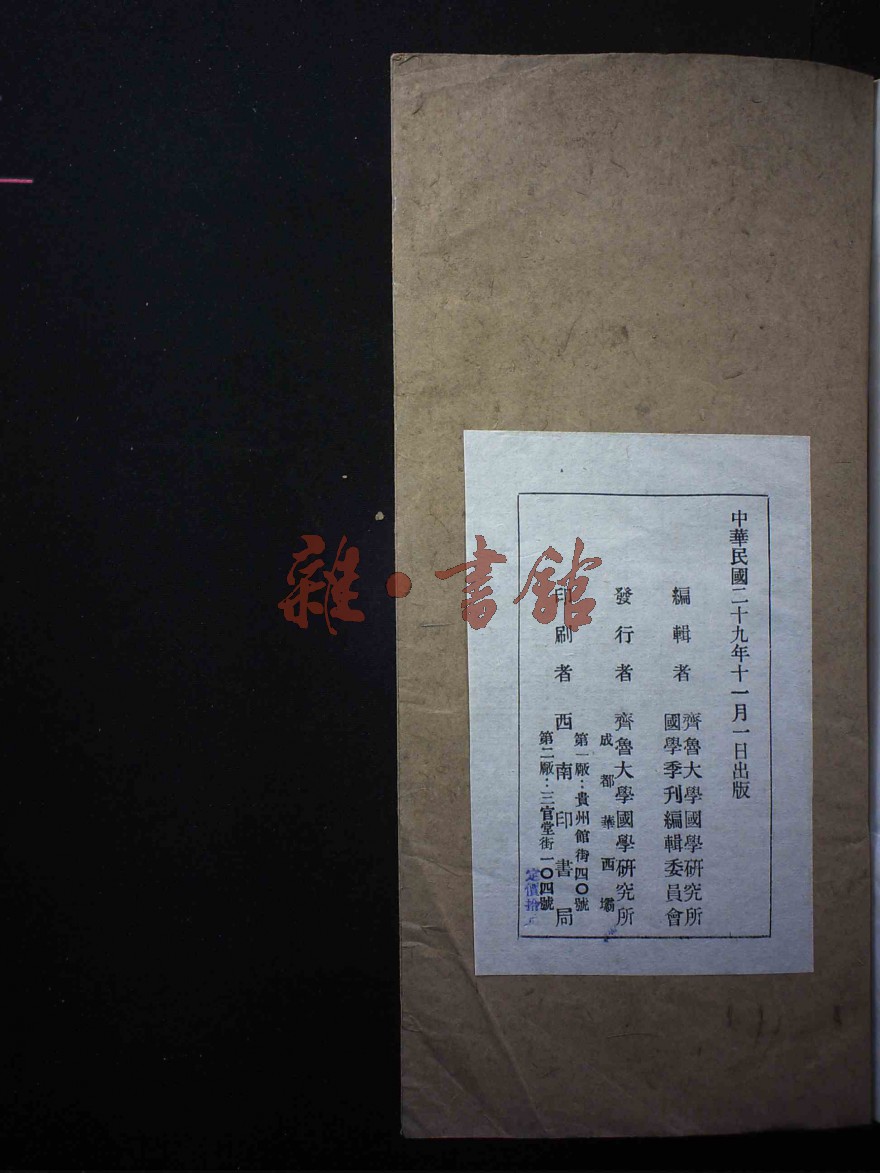 中華民國二十九年十一月一日出版
編輯者
齊魯大學國學研究所
國學季刊編輯委員會
發行者
齊魯大學國學研究所
成都華西壩
印刷者
西南印書局
第一厰：貴州館街四〇號
第二厰：三官堂街一〇四號
定價拾
雜·書館